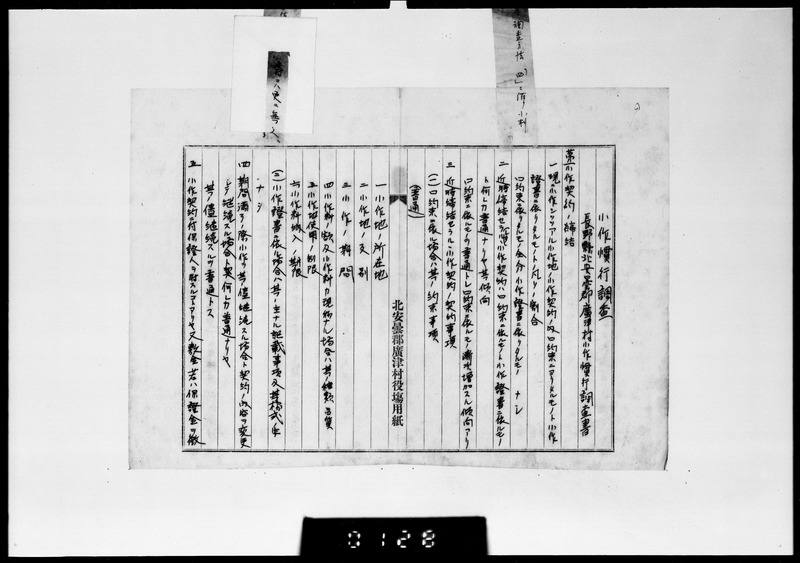 小作慣行調査
長野縣北安曇郡廣津村小作慣行調査書
第一 小作契約ノ締結
一 現ニ小作シツツアル小作地ノ小作契約ノ内口約束ニヨリタルモノト小作
證書ニ依リタルモノトノ割合
口約束ニ依リタルモノ全部 小作證書ニ依リタルモノ ナシ
二 近時締結セラルル小作契約ハ口約束ニ依ルモノト小作證書ニ依ルモノ
ト何レカ普通ナリヤ其傾向
口約束ニ依ルモノヲ普通トシ口約束ニ依ルモノ漸次増加スル傾向アリ
三 近時締結セラルル小作契約ノ契約事項
(一) 口約束ニ依ル場合ハ其ノ約束事項
(普通)
北安曇郡廣津村役場用紙
一 小作地ノ所在地
二 小作地反別
三 小作ノ期間
四 小作料ノ額及小作料カ現物ナル場合ハ其ノ種類品質
五 小作地使用ノ制限
六 小作料納入ノ期限
(二) 小作證書ニ依ル場合ハ其ノ主ナル記載事項及其ノ様式
ナシ
四 期間満了ノ際小作ヲ其ノ儘継続スル場合ト契約ノ内容ヲ変更
シテ継続スル場合ト契何レカ普通ナリヤ
其ノ儘継続スルヲ普通トス
五 小作契約ニ付保證人ヲ附スルコトアリヤ又敷金若ハ保證金ヲ徴
0128